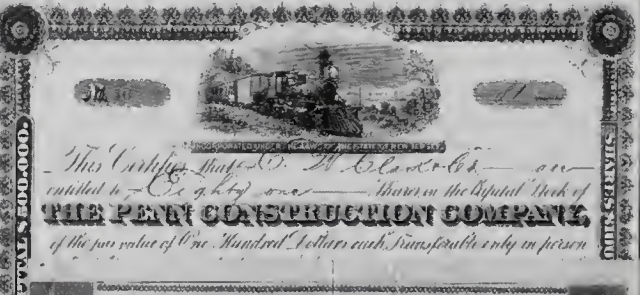 INCORPORATED UNDER THE LAWS OF THE STATE OF NEW JERSEY
This Certifies that E. W. Clark & Co. are
entitled to Eighty one Shares in the Capital Stock of
THE PENN CONSTRUCTION COMPANY,
of the par value of One Hundred Dollars each Transferable only in person
$500.000.